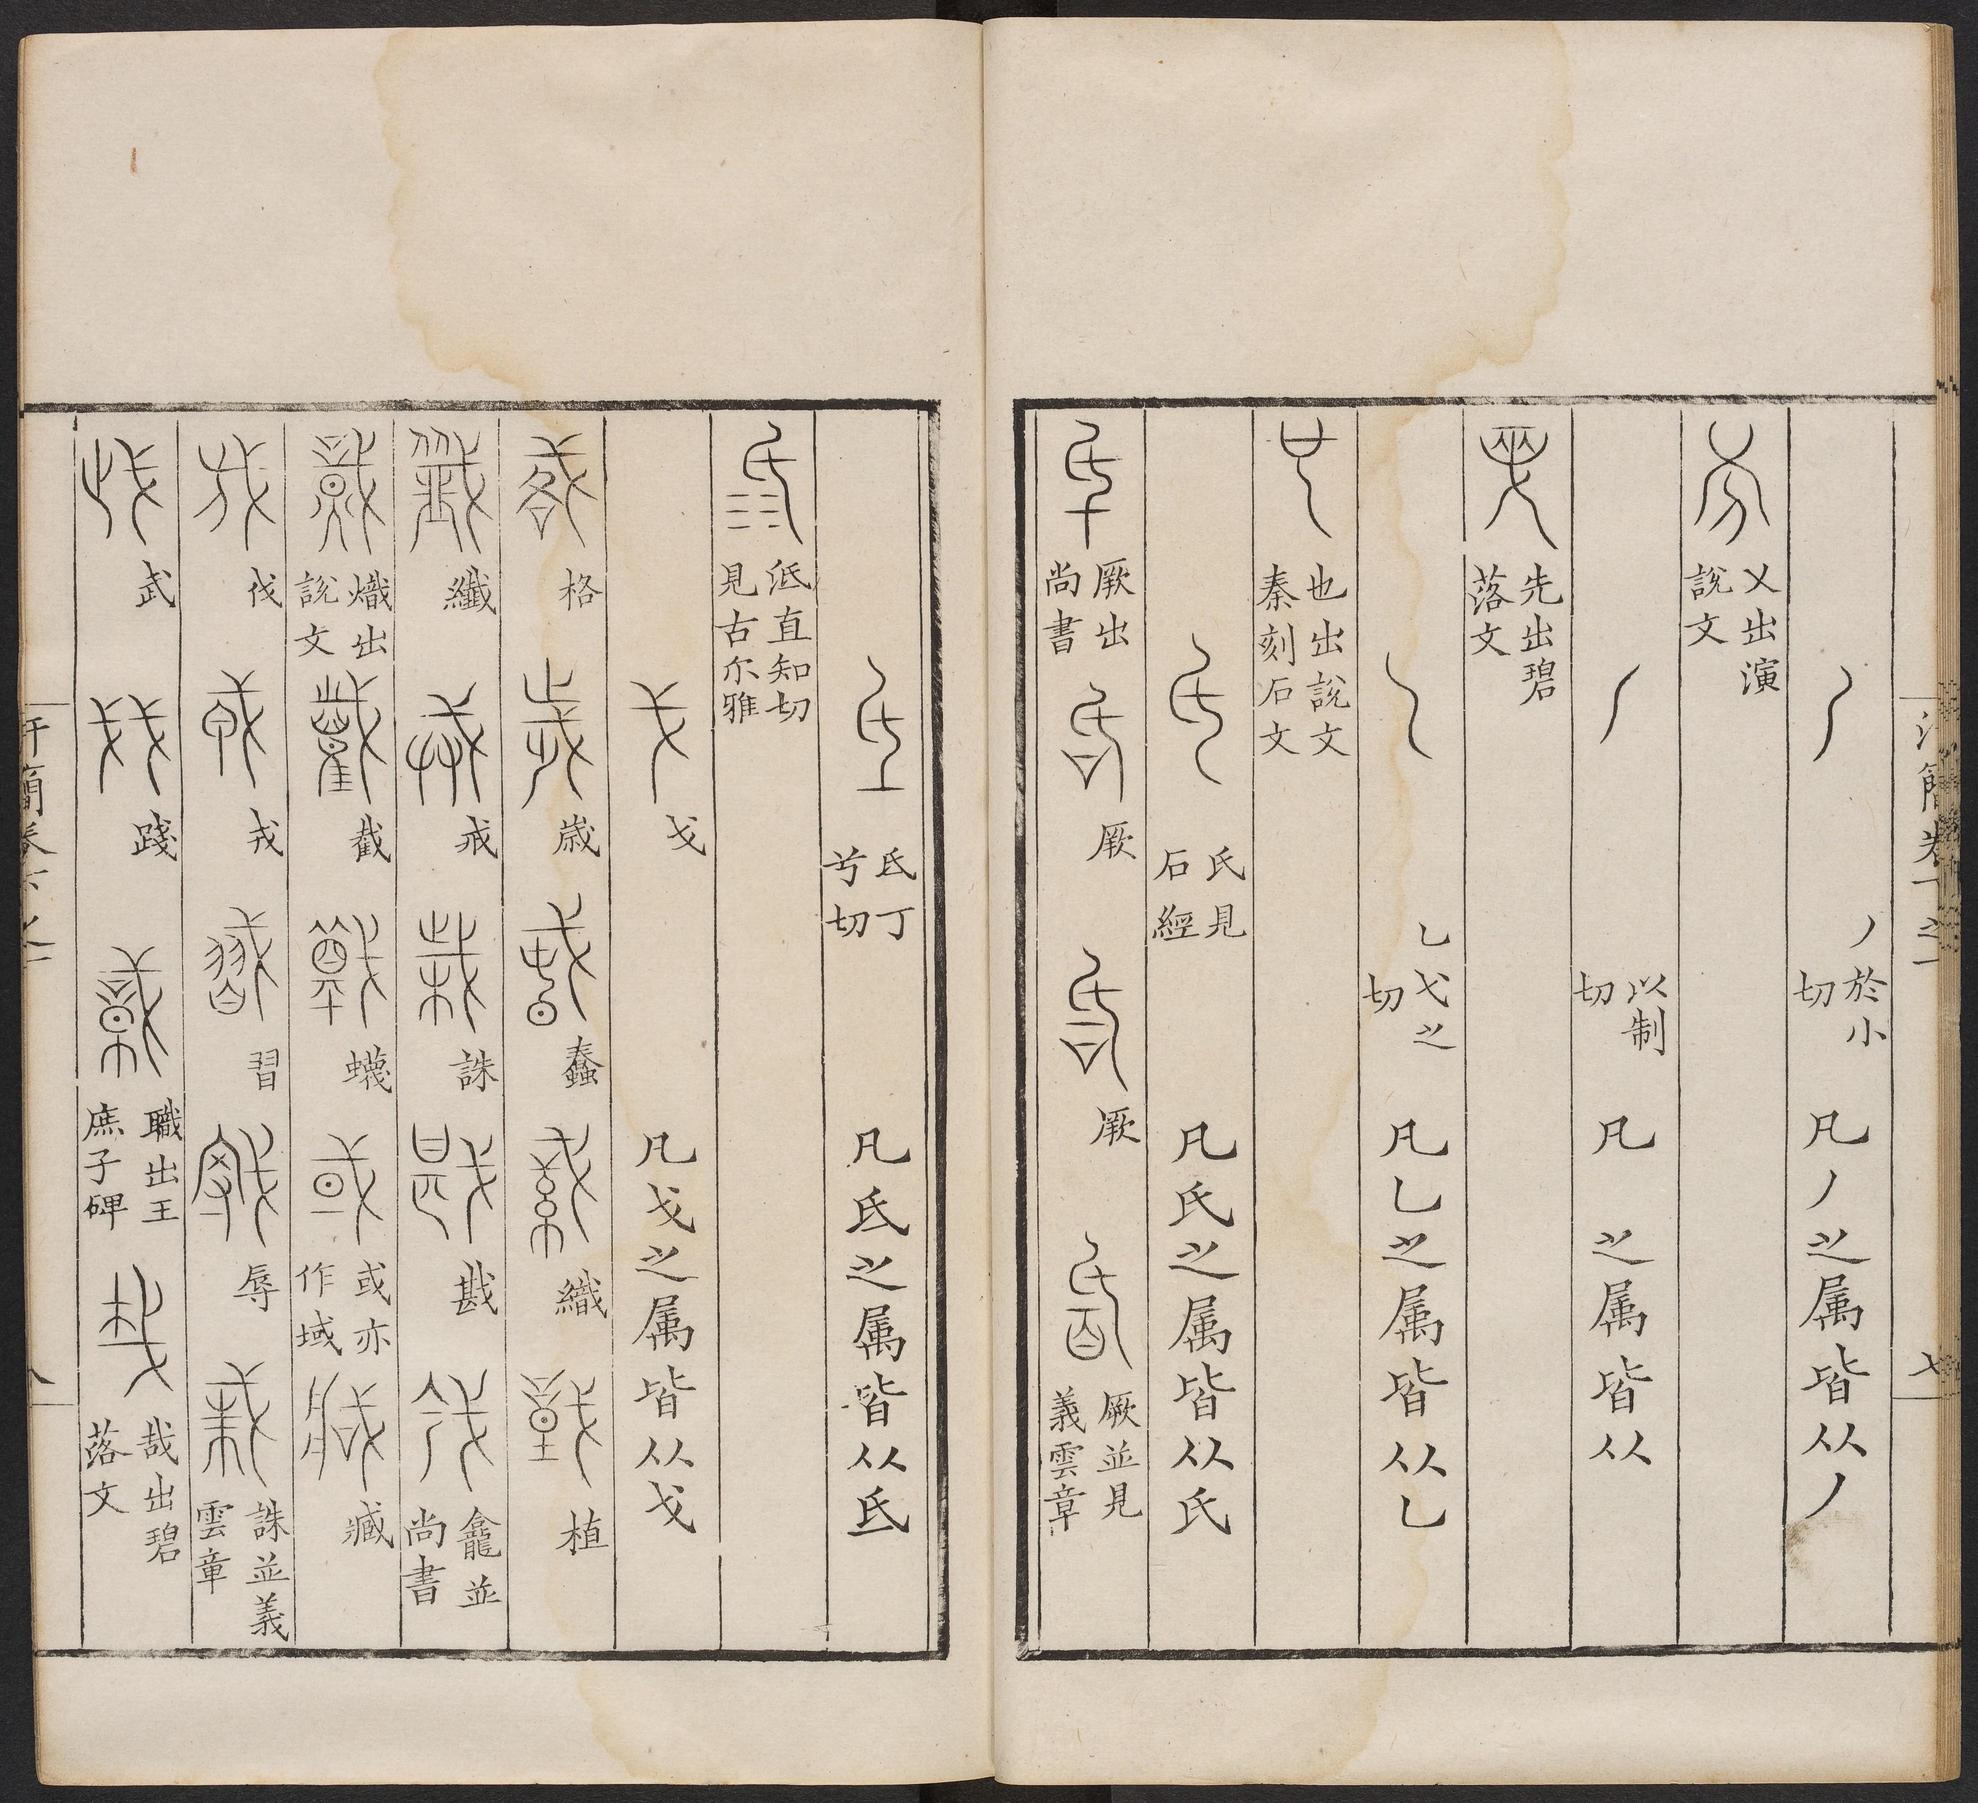 丿於小切 凡丿之属皆从丿
乂出演說文
以制切 凡 之属皆从
先出碧落文
乚弋之切 凡乚之属皆从乚
也出說文秦刻石文
氏見石經 凡氏之属皆从氏
厥出尚書 厥 厥 厥並見義雲章
氐丁兮切 凡氐之属皆从氐
直知切見古尓雅
戈 凡戈之属皆从戈
格 歳 蠢 織 植
纖 戒 誅 戡 龕並尚書
熾出說文 截 蠛 或亦作域 臧
伐 戎 習 辱 誅並義雲章
武 踐 職出王庶子碑 哉出碧落文
汗簡卷下之一 七
汗簡卷下之一 八